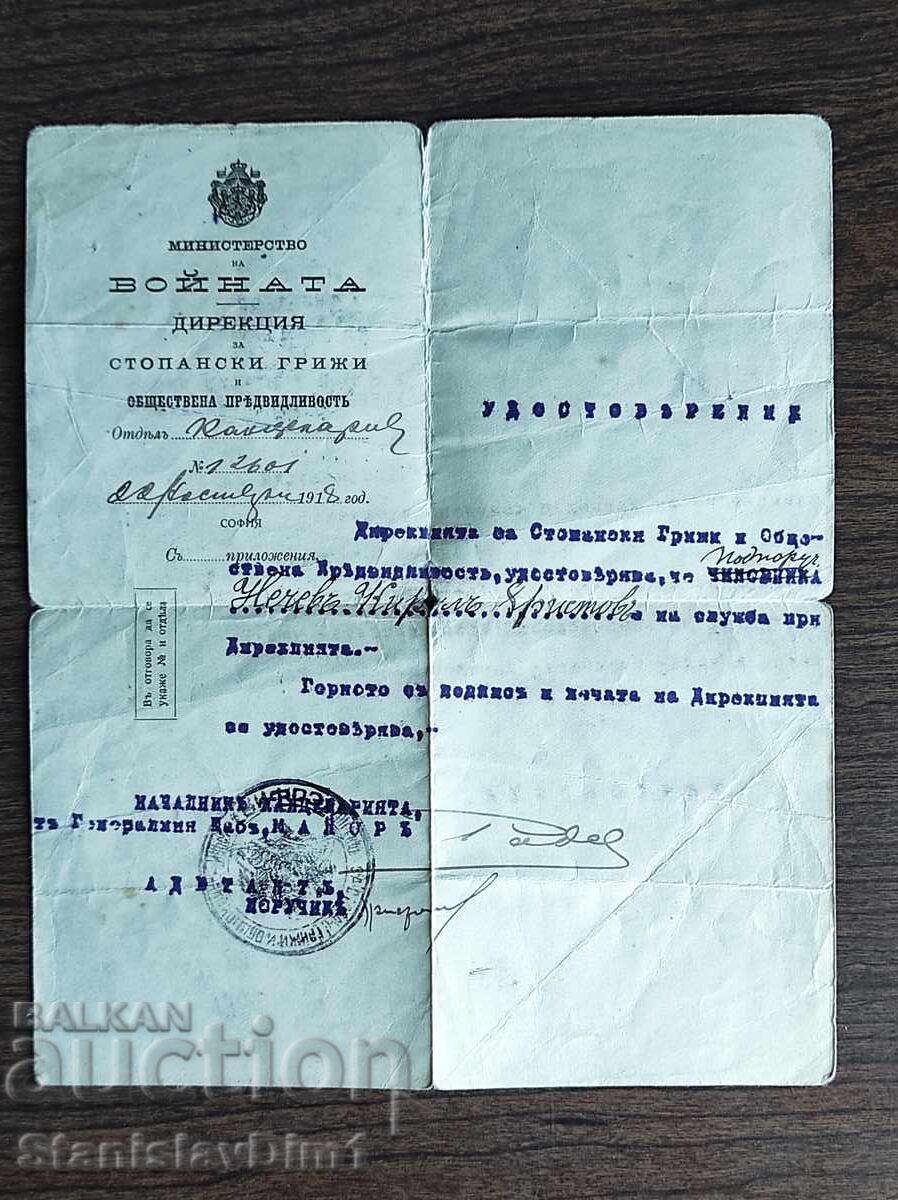 МИНИСТЕРСТВО
НА
ВОЙНАТА
ДИРЕКЦИЯ
ЗА
СТОПАНСКИ ГРИЖИ
И
ОБЩЕСТВЕНА ПРѢДВИДЛИВОСТЬ
Отдѣлъ Канцелария
№ 12601
22 1918 год.
СОФИЯ
Съ приложения.
УДОСТОВѢРЕНИЕ
Дирекцията за Стопански Грижи и Обще-
Подпоруч.
ствена Прѣдвидливость, удостовѣрява, че ЧИНОВНИКА
Нечевъ Кирилъ Христовъ е на служба при
Дирекцията.-
Горното съ подписъ и печата на Дирекцията
се удостовѣрява,-
Въ отговора да се
укаже № и отдѣла
НАЧАЛНИКЪ КАНЦЕЛАРИЯТА,
тъ Генералния Щабъ, МАЙОРЪ
АДЮТАНТЪ,
ПОРУЧИКЪ
BALKAN
auction
StanislavDim1